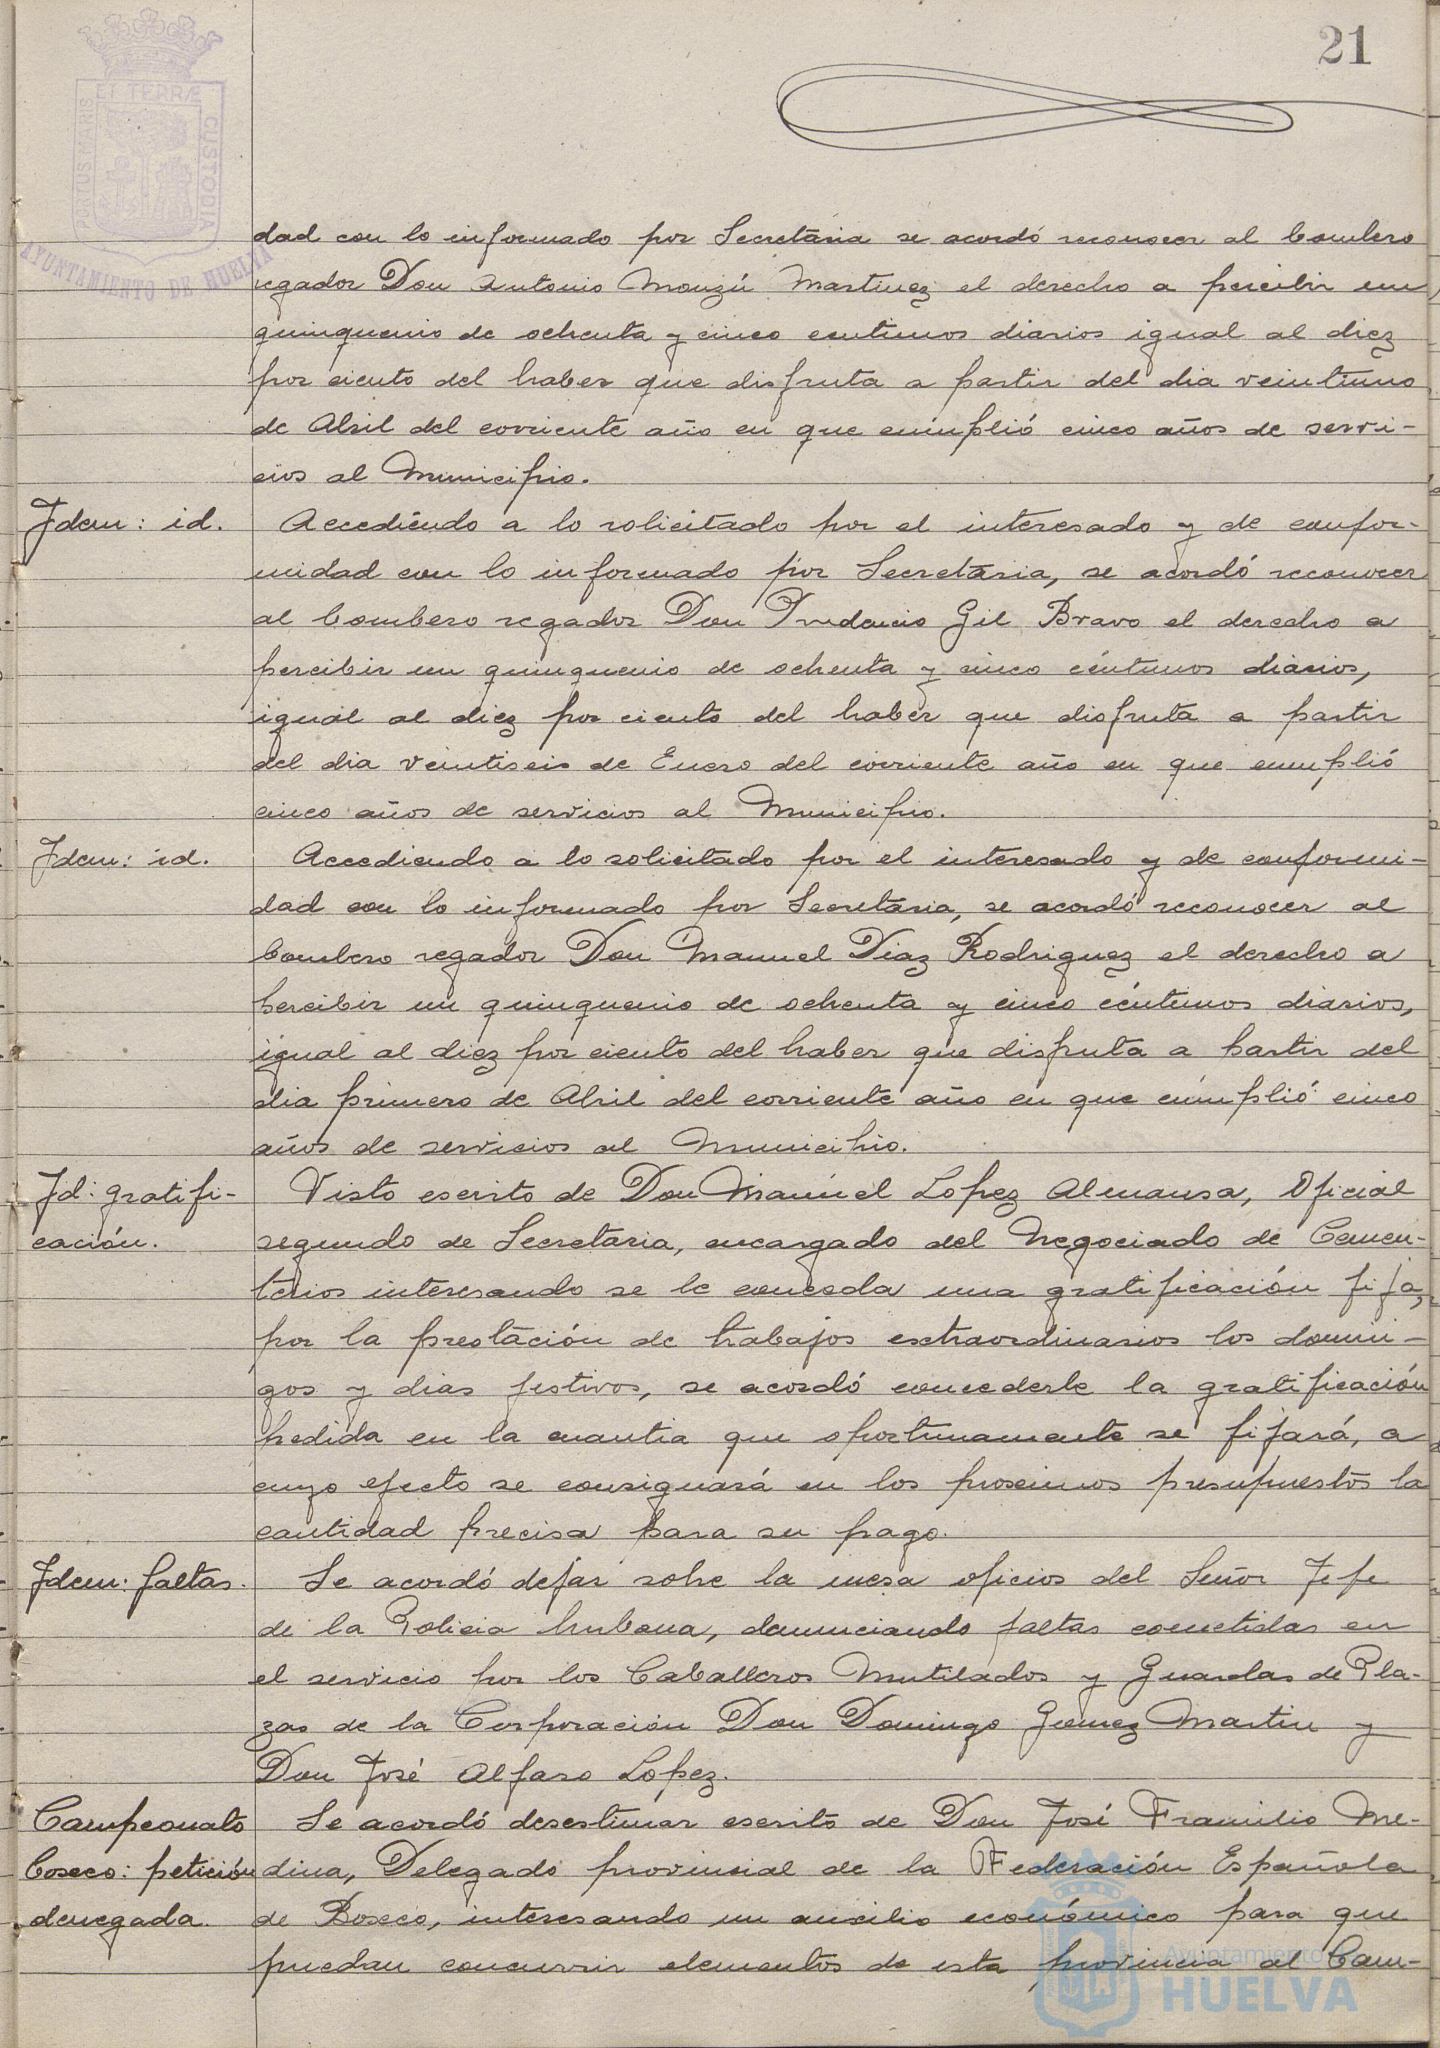 21
PORTUS MARIS
ET TERRÆ
CUSTODIA
AYUNTAMIENTO DE HUELVA
dad con lo informado por Secretaria se acordó reconocer al bombero
regador Don Antonio Monzú Martinez el derecho a percibir un
quinquenio de ochenta y cinco centimos diarios igual al diez
por ciento del haber que disfruta a partir del dia veintiuno
de Abril del corriente año en que cumplió cinco años de servi-
cios al Municipio.
Idem: id.
Accediendo a lo solicitado por el interesado y de confor-
midad con lo informado por Secretaria, se acordó reconocer
al bombero regador Don Prudencio Gil Bravo el derecho a
percibir un quinquenio de ochenta y cinco céntimos diarios,
igual al diez por ciento del haber que disfruta a partir
del dia veintiseis de Enero del corriente año en que cumplió
cinco años de servicios al Municipio.
Idem: id.
Accediendo a lo solicitado por el interesado y de conformi-
dad con lo informado por Secretaria, se acordó reconocer al
bombero regador Don Manuel Diaz Rodriguez el derecho a
percibir un quinquenio de ochenta y cinco céntimos diarios,
igual al diez por ciento del haber que disfruta a partir del
dia primero de Abril del corriente año en que cumplió cinco
años de servicios al Municipio.
Id: gratifi-
cación.
Visto escrito de Don Manuel Lopez Almansa, Oficial
segundo de Secretaria, encargado del Negociado de Cemen-
terios interesando se le conceda una gratificación fija,
por la prestación de trabajos extraordinarios los domin-
gos y dias festivos, se acordó concederle la gratificación
pedida en la cuantia que oportunamente se fijará, a
cuyo efecto se consignará en los proximos presupuestos la
cantidad precisa para su pago.
Idem: faltas.
Se acordó dejar sobre la mesa oficios del Señor Jefe
de la Policia Urbana, denunciando faltas cometidas en
el servicio por los Caballeros Mutilados y Guardas de Pla-
zas de la Corporación Don Domingo Gomez Martin y
Don José Alfaro Lopez.
Campeonato
boxeo: petición
denegada.
Se acordó desestimar escrito de Don José Framilio Me-
dina, Delegado provincial de la Federación Española
de Boxeo, interesando un auxilio económico para que
puedan concurrir elementos de esta provincia al Cam-
Ayuntamiento
HUELVA